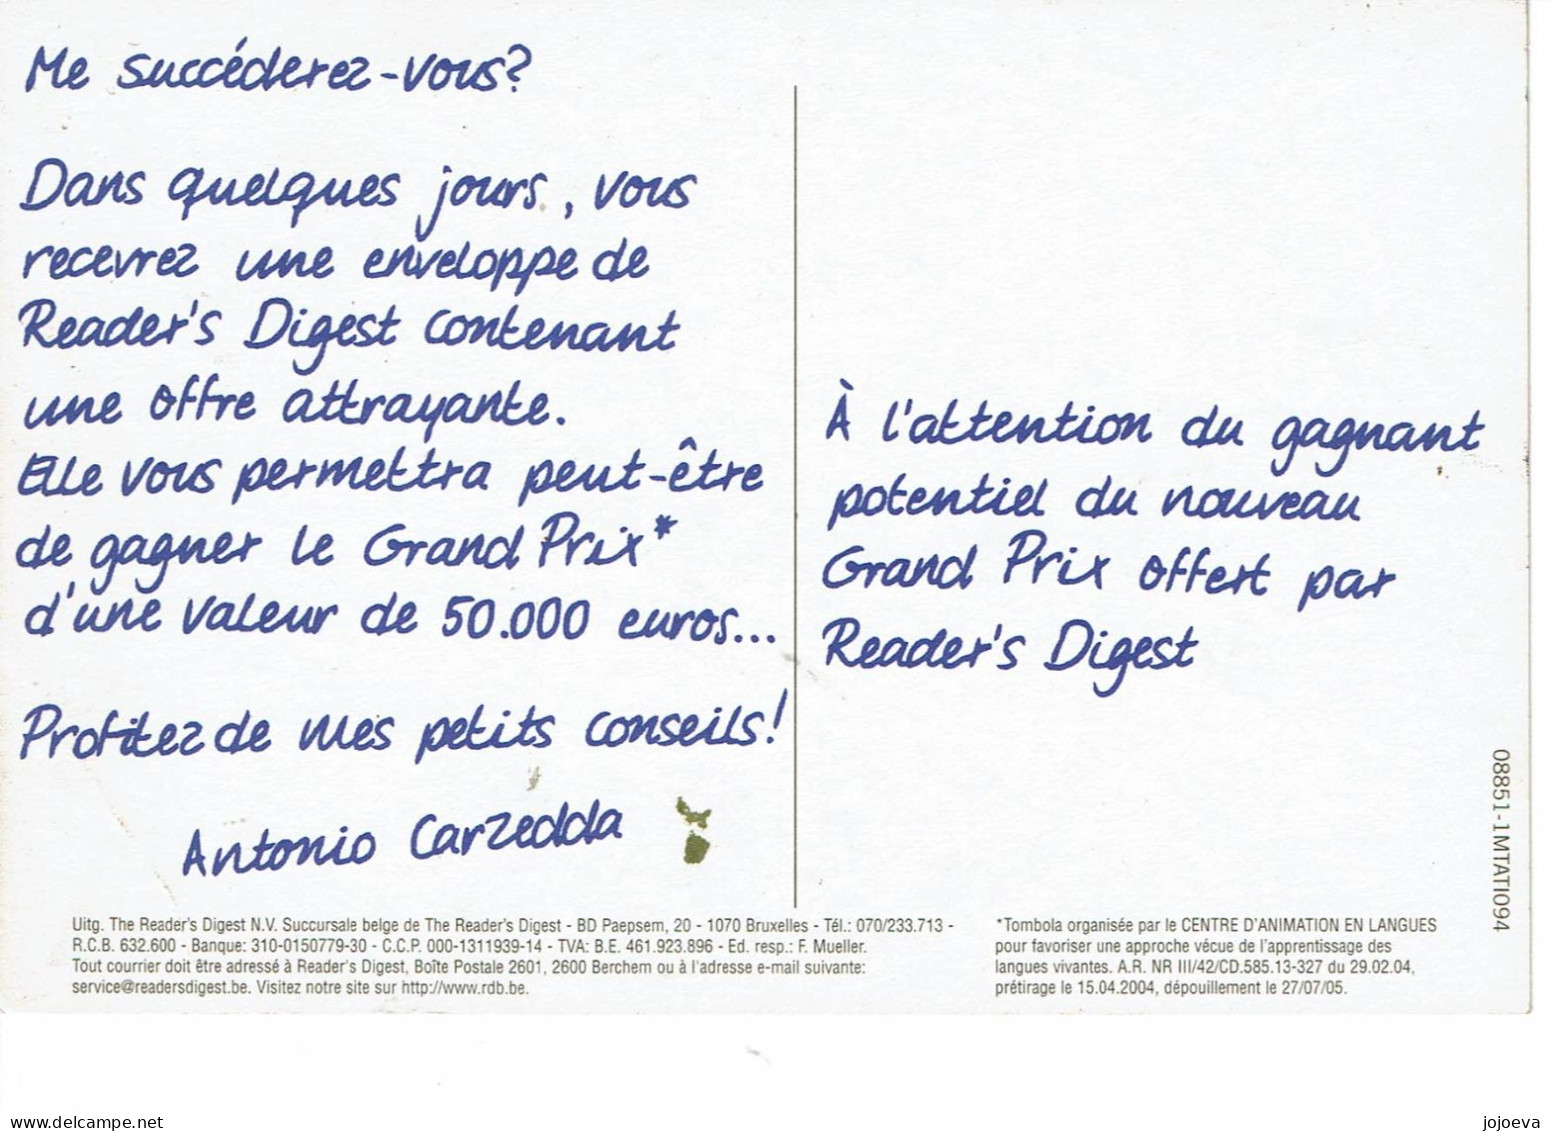 Me succéderez-vous?
Dans quelques jours, vous
recevrez une enveloppe de
Reader's Digest contenant
une offre attrayante.
Elle vous permettra peut-être
de gagner le Grand Prix*
d'une valeur de 50.000 euros...
Profitez de mes petits conseils!
Antonio Carzedda
À l'attention du gagnant
potentiel du nouveau
Grand Prix offert par
Reader's Digest
08851-1MTATI094
Uitg. The Reader's Digest N.V. Succursale belge de The Reader's Digest - BD Paepsem, 20 - 1070 Bruxelles - Tél.: 070/233.713 -
R.C.B. 632.600 - Banque: 310-0150779-30 - C.C.P. 000-1311939-14 - TVA: B.E. 461.923.896 - Ed. resp.: F. Mueller.
Tout courrier doit être adressé à Reader's Digest, Boîte Postale 2601, 2600 Berchem ou à l'adresse e-mail suivante:
service@readersdigest.be. Visitez notre site sur http://www.rdb.be.
*Tombola organisée par le CENTRE D'ANIMATION EN LANGUES
pour favoriser une approche vécue de l'apprentissage des
langues vivantes. A.R. NR III/42/CD.585.13-327 du 29.02.04,
prétirage le 15.04.2004, dépouillement le 27/07/05.
www.delcampe.net
jojoeva